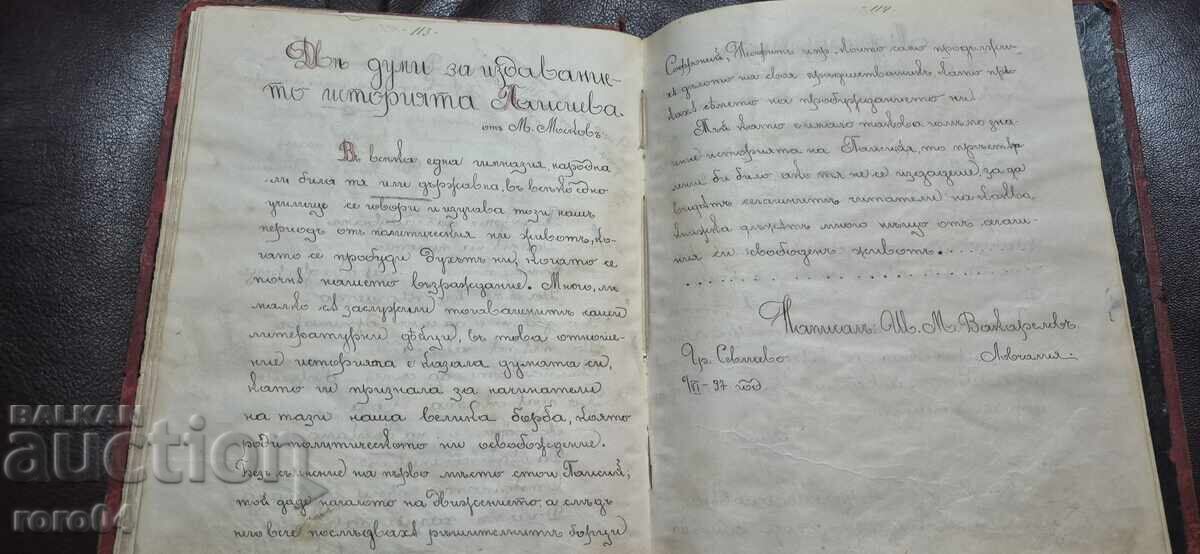 - 113 -
Двѣ думи за издавание-
то историята Паисиева.
отъ М. Москов.
Въ всѣка една гимназия, народна
ли била тя или държавна, въ всѣко едно
училище се говори и изучава този нашъ
периодъ отъ политическия ни животъ, ко-
гато се пробуди духътъ ни, когато се
почнѣ нашето възраждание. Много, ли
малко сѫ заслужили тогавашнитѣ наши
литературни дѣйци, въ това отноше-
ние историята е казала думата си,
като ги признала за начинатели
на тази наша велика борба, която
роди политическото ни освобождение.
Безъ съмнение на първо мѣсто стои Паисий;
той даде началото на движението, а слѣдъ
него вече послѣдвахѫ рѣшителнитѣ борци
114.
Софроний, Неофитъ и пр. които само продължи-
хѫ дѣлото на своя предшественникъ, като
на пробужданието ни
Тъй като е имало такова голѣмо зна-
чение историята на Паисия, то
би било ако тя не се издадеше, за да
видѫтъ сегашнитѣ читатели на каква
книжка дължѫтъ много нѣщо отъ сегаш-
ния си свободенъ животъ. . . .
. . . . . . . . . . . . . . . . . . .
Написал: Ш. М. Вакарелевъ
Гр. Севлиево
Ловчалия.
9/VI - 97 год
БАЛКАН
auction
roro64